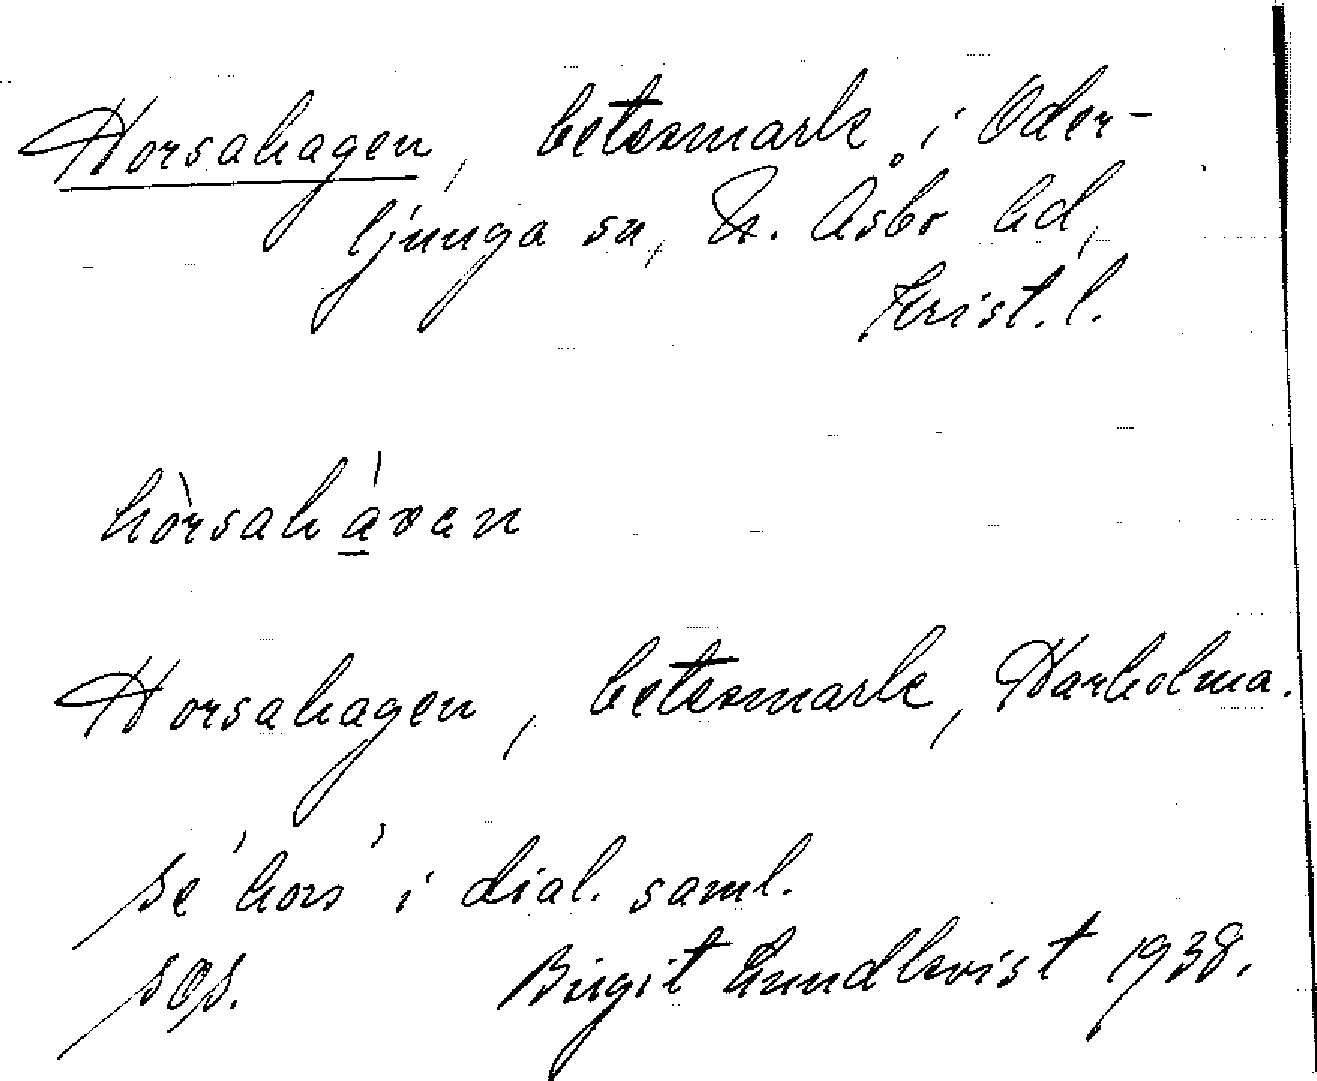 Horsahagen, betesmark i Oder-
ljunga sn, N. Åsbo hd,
Krist. l.
hòrsahàvan
Horsahagen, betesmark, Harholma.
se 'hors' i dial. saml.
Birgit Lundkvist 1938.